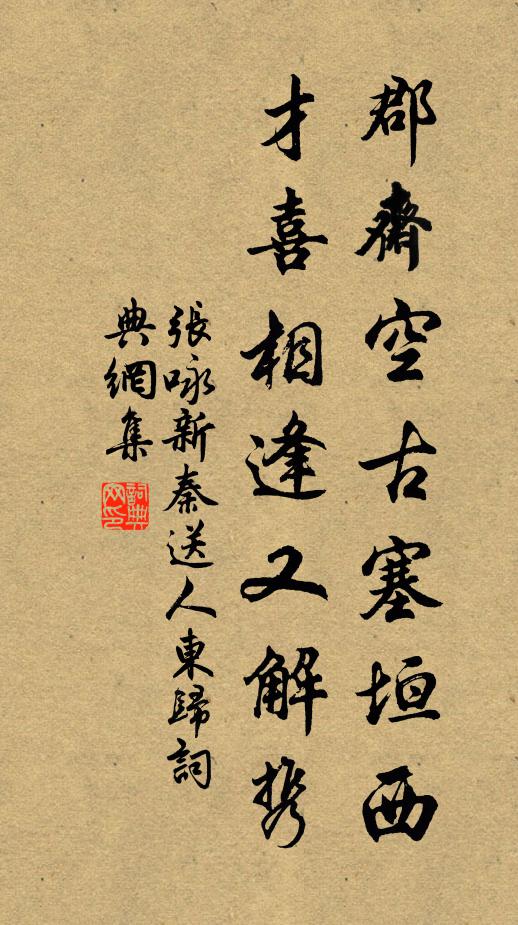 郡齋空古塞垣西
才喜相逢又解携
張咏新秦送人東歸詞
典網集
詞典网印